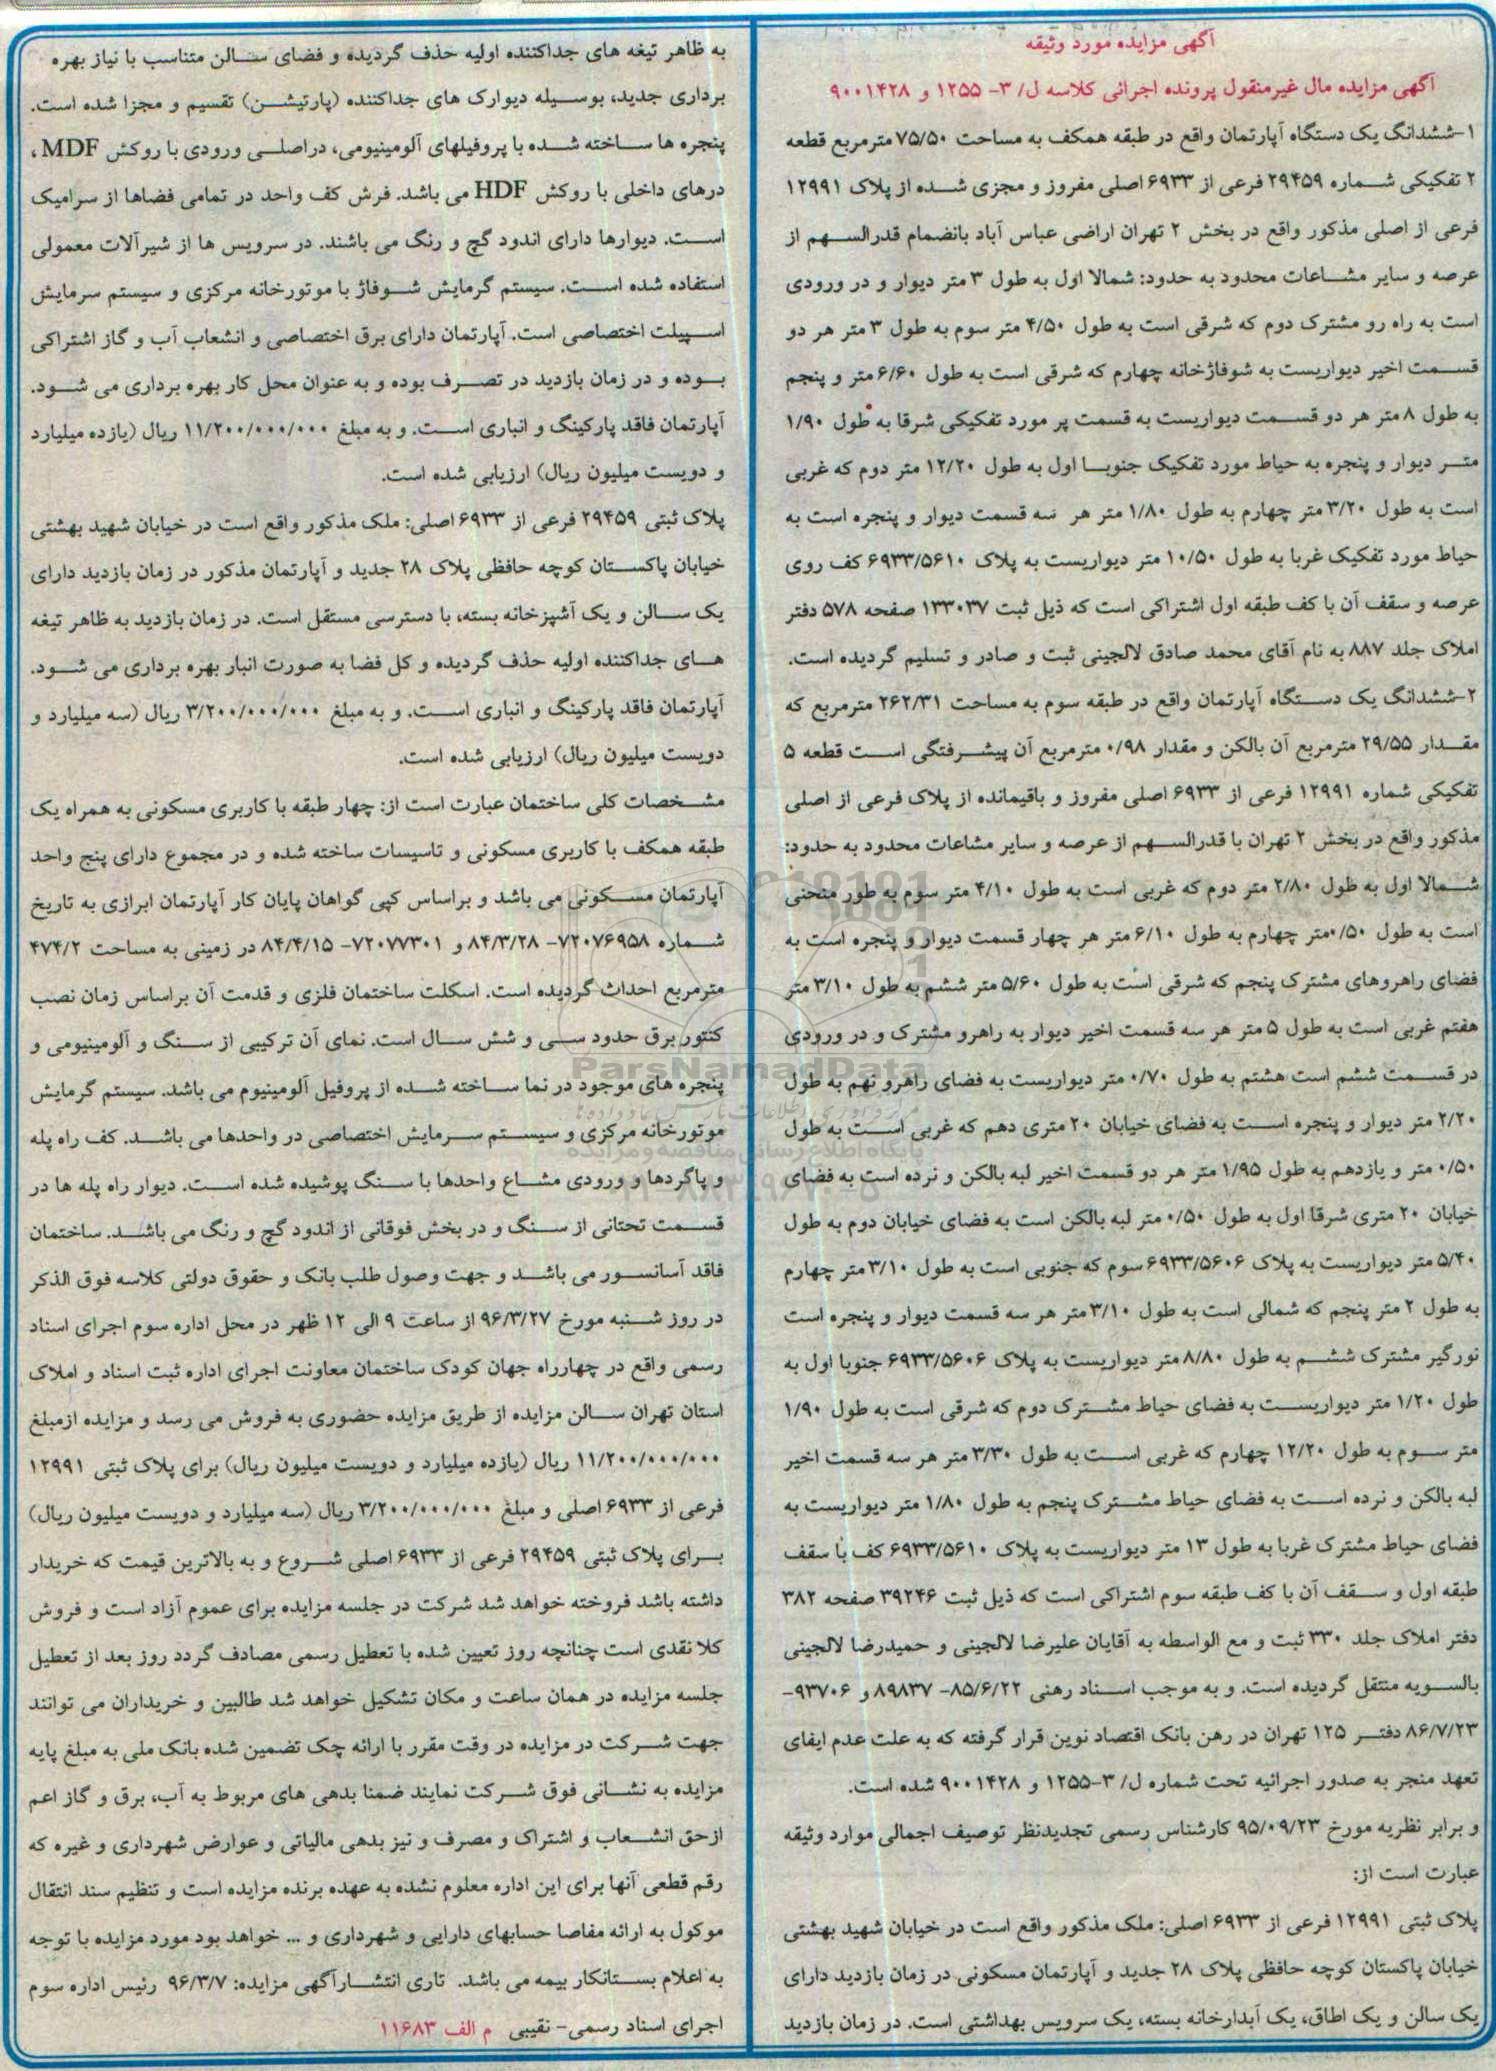 آگهی مزایده مورد وثیقه
آگهی مزایده مال غیرمنقول پرونده اجرائی کلاسه ل/ ۳- ۱۲۵۵ و ۹۰۰۱۴۲۸
۱-ششدانگ یک دستگاه آپارتمان واقع در طبقه همکف به مساحت ۷۵/۵۰ مترمربع قطعه
۲ تفکیکی شماره ۲۹۴۵۹ فرعی از ۶۹۳۳ اصلی مفروز و مجزی شده از پلاک ۱۲۹۹۱
فرعی از اصلی مذکور واقع در بخش ۲ تهران اراضی عباس آباد بانضمام قدرالسهم از
عرصه و سایر مشاعات محدود به حدود: شمالا اول به طول ۳ متر دیوار و در ورودی
است به راه رو مشترک دوم که شرقی است به طول ۴/۵۰ متر سوم به طول ۳ متر هر دو
قسمت اخیر دیواریست به شوفاژخانه چهارم که شرقی است به طول ۶/۶۰ متر و پنجم
به طول ۸ متر هر دو قسمت دیواریست به قسمت پر مورد تفکیکی شرقا به طول ۱/۹۰
متر دیوار و پنجره به حیاط مورد تفکیک جنوبا اول به طول ۱۲/۲۰ متر دوم که غربی
است به طول ۳/۲۰ متر چهارم به طول ۱/۸۰ متر هر سه قسمت دیوار و پنجره است به
حیاط مورد تفکیک غربا به طول ۱۰/۵۰ متر دیواریست به پلاک ۶۹۳۳/۵۶۱۰ کف روی
عرصه و سقف آن با کف طبقه اول اشتراکی است که ذیل ثبت ۱۳۳۰۳۷ صفحه ۵۷۸ دفتر
املاک جلد ۸۸۷ به نام آقای محمد صادق لالجینی ثبت و صادر و تسلیم گردیده است.
۲-ششدانگ یک دستگاه آپارتمان واقع در طبقه سوم به مساحت ۲۶۲/۳۱ مترمربع که
مقدار ۲۹/۵۵ مترمربع آن بالکن و مقدار ۰/۹۸ مترمربع آن پیشرفتگی است قطعه ۵
تفکیکی شماره ۱۲۹۹۱ فرعی از ۶۹۳۳ اصلی مفروز و باقیمانده از پلاک فرعی از اصلی
مذکور واقع در بخش ۲ تهران با قدرالسهم از عرصه و سایر مشاعات محدود به حدود:
شمالا اول به طول ۲/۸۰ متر دوم که غربی است به طول ۴/۱۰ متر سوم به طور منحنی
است به طول ۰/۵۰متر چهارم به طول ۶/۱۰ متر هر چهار قسمت دیوار و پنجره است به
فضای راهروهای مشترک پنجم که شرقی است به طول ۵/۶۰ متر ششم به طول ۳/۱۰ متر
هفتم غربی است به طول ۵ متر هر سه قسمت اخیر دیوار به راهرو مشترک و در ورودی
در قسمت ششم است هشتم به طول ۰/۷۰ متر دیواریست به فضای راهرو نهم به طول
۲/۲۰ متر دیوار و پنجره است به فضای خیابان ۲۰ متری دهم که غربی است به طول
۰/۵۰ متر و یازدهم به طول ۱/۹۵ متر هر دو قسمت اخیر لبه بالکن و نرده است به فضای
خیابان ۲۰ متری شرقا اول به طول ۰/۵۰ متر لبه بالکن است به فضای خیابان دوم به طول
۵/۴۰ متر دیواریست به پلاک ۶۹۳۳/۵۶۰۶ سوم که جنوبی است به طول ۳/۱۰ متر چهارم
به طول ۲ متر پنجم که شمالی است به طول ۳/۱۰ متر هر سه قسمت دیوار و پنجره است
نورگیر مشترک ششم به طول ۸/۸۰ متر دیواریست به پلاک ۶۹۳۳/۵۶۰۶ جنوبا اول به
طول ۱/۲۰ متر دیواریست به فضای حیاط مشترک دوم که شرقی است به طول ۱/۹۰
متر سوم به طول ۱۲/۲۰ چهارم که غربی است به طول ۳/۳۰ متر هر سه قسمت اخیر
لبه بالکن و نرده است به فضای حیاط مشترک پنجم به طول ۱/۸۰ متر دیواریست به
فضای حیاط مشترک غربا به طول ۱۳ متر دیواریست به پلاک ۶۹۳۳/۵۶۱۰ کف با سقف
طبقه اول و سقف آن با کف طبقه سوم اشتراکی است که ذیل ثبت ۳۹۲۴۶ صفحه ۳۸۲
دفتر املاک جلد ۳۳۰ ثبت و مع الواسطه به آقایان علیرضا لالجینی و حمیدرضا لالجینی
بالسویه منتقل گردیده است. و به موجب اسناد رهنی ۸۵/۶/۲۲- ۸۹۸۳۷ و ۹۳۷۰۶-
۸۶/۷/۲۳ دفتر ۱۲۵ تهران در رهن بانک اقتصاد نوین قرار گرفته که به علت عدم ایفای
تعهد منجر به صدور اجرائیه تحت شماره ل/ ۳-۱۲۵۵ و ۹۰۰۱۴۲۸ شده است.
و برابر نظریه مورخ ۹۵/۰۹/۲۳ کارشناس رسمی تجدیدنظر توصیف اجمالی موارد وثیقه
عبارت است از:
پلاک ثبتی ۱۲۹۹۱ فرعی از ۶۹۳۳ اصلی: ملک مذکور واقع است در خیابان شهید بهشتی
خیابان پاکستان کوچه حافظی پلاک ۲۸ جدید و آپارتمان مسکونی در زمان بازدید دارای
یک سالن و یک اطاق، یک آبدارخانه بسته، یک سرویس بهداشتی است. در زمان بازدید
به ظاهر تیغه های جداکننده اولیه حذف گردیده و فضای سالن متناسب با نیاز بهره
برداری جدید، بوسیله دیوارک های جداکننده (پارتیشن) تقسیم و مجزا شده است.
پنجره ها ساخته شده با پروفیلهای آلومینیومی، دراصلی ورودی با روکش MDF ،
درهای داخلی با روکش HDF می باشد. فرش کف واحد در تمامی فضاها از سرامیک
است. دیوارها دارای اندود گچ و رنگ می باشند. در سرویس ها از شیرآلات معمولی
استفاده شده است. سیستم گرمایش شوفاژ با موتورخانه مرکزی و سیستم سرمایش
اسپیلت اختصاصی است. آپارتمان دارای برق اختصاصی و انشعاب آب و گاز اشتراکی
بوده و در زمان بازدید در تصرف بوده و به عنوان محل کار بهره برداری می شود.
آپارتمان فاقد پارکینگ و انباری است. و به مبلغ ۱۱/۲۰۰/۰۰۰/۰۰۰ ریال (یازده میلیارد
و دویست میلیون ریال) ارزیابی شده است.
پلاک ثبتی ۲۹۴۵۹ فرعی از ۶۹۳۳ اصلی: ملک مذکور واقع است در خیابان شهید بهشتی
خیابان پاکستان کوچه حافظی پلاک ۲۸ جدید و آپارتمان مذکور در زمان بازدید دارای
یک سالن و یک آشپزخانه بسته، با دسترسی مستقل است. در زمان بازدید به ظاهر تیغه
های جداکننده اولیه حذف گردیده و کل فضا به صورت انبار بهره برداری می شود.
آپارتمان فاقد پارکینگ و انباری است. و به مبلغ ۳/۲۰۰/۰۰۰/۰۰۰ ریال (سه میلیارد و
دویست میلیون ریال) ارزیابی شده است.
مشخصات کلی ساختمان عبارت است از: چهار طبقه با کاربری مسکونی به همراه یک
طبقه همکف با کاربری مسکونی و تاسیسات ساخته شده و در مجموع دارای پنج واحد
آپارتمان مسکونی می باشد و براساس کپی گواهان پایان کار آپارتمان ابرازی به تاریخ
شماره ۷۲۰۷۶۹۵۸- ۸۴/۳/۲۸ و ۷۲۰۷۷۳۰۱- ۸۴/۴/۱۵ در زمینی به مساحت ۴۷۴/۲
مترمربع احداث گردیده است. اسکلت ساختمان فلزی و قدمت آن براساس زمان نصب
کنتور برق حدود سی و شش سال است. نمای آن ترکیبی از سنگ و آلومینیومی و
پنجره های موجود در نما ساخته شده از پروفیل آلومینیوم می باشد. سیستم گرمایش
موتورخانه مرکزی و سیستم سرمایش اختصاصی در واحدها می باشد. کف راه پله
و پاگردها و ورودی مشاع واحدها با سنگ پوشیده شده است. دیوار راه پله ها در
قسمت تحتانی از سنگ و در بخش فوقانی از اندود گچ و رنگ می باشد. ساختمان
فاقد آسانسور می باشد و جهت وصول طلب بانک و حقوق دولتی کلاسه فوق الذکر
در روز شنبه مورخ ۹۶/۳/۲۷ از ساعت ۹ الی ۱۲ ظهر در محل اداره سوم اجرای اسناد
رسمی واقع در چهارراه جهان کودک ساختمان معاونت اجرای اداره ثبت اسناد و املاک
استان تهران سالن مزایده از طریق مزایده حضوری به فروش می رسد و مزایده ازمبلغ
۱۱/۲۰۰/۰۰۰/۰۰۰ ریال (یازده میلیارد و دویست میلیون ریال) برای پلاک ثبتی ۱۲۹۹۱
فرعی از ۶۹۳۳ اصلی و مبلغ ۳/۲۰۰/۰۰۰/۰۰۰ ریال (سه میلیارد و دویست میلیون ریال)
برای پلاک ثبتی ۲۹۴۵۹ فرعی از ۶۹۳۳ اصلی شروع و به بالاترین قیمت که خریدار
داشته باشد فروخته خواهد شد شرکت در جلسه مزایده برای عموم آزاد است و فروش
کلا نقدی است چنانچه روز تعیین شده با تعطیل رسمی مصادف گردد روز بعد از تعطیل
جلسه مزایده در همان ساعت و مکان تشکیل خواهد شد طالبین و خریداران می توانند
جهت شرکت در مزایده در وقت مقرر با ارائه چک تضمین شده بانک ملی به مبلغ پایه
مزایده به نشانی فوق شرکت نمایند ضمنا بدهی های مربوط به آب، برق و گاز اعم
ازحق انشعاب و اشتراک و مصرف و نیز بدهی مالیاتی و عوارض شهرداری و غیره که
رقم قطعی آنها برای این اداره معلوم نشده به عهده برنده مزایده است و تنظیم سند انتقال
موکول به ارائه مفاصا حسابهای دارایی و شهرداری و ... خواهد بود مورد مزایده با توجه
به اعلام بستانکار بیمه می باشد. تاری انتشارآگهی مزایده: ۹۶/۳/۷ رئیس اداره سوم
اجرای اسناد رسمی- نقیبی م الف ۱۱۶۸۳
ParsNamadData
پایگاه اطلاع رسانی مناقصه و مزایده